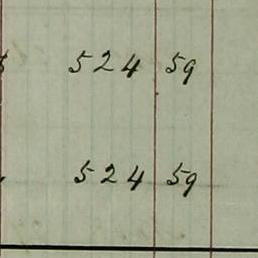 524 59
524 59